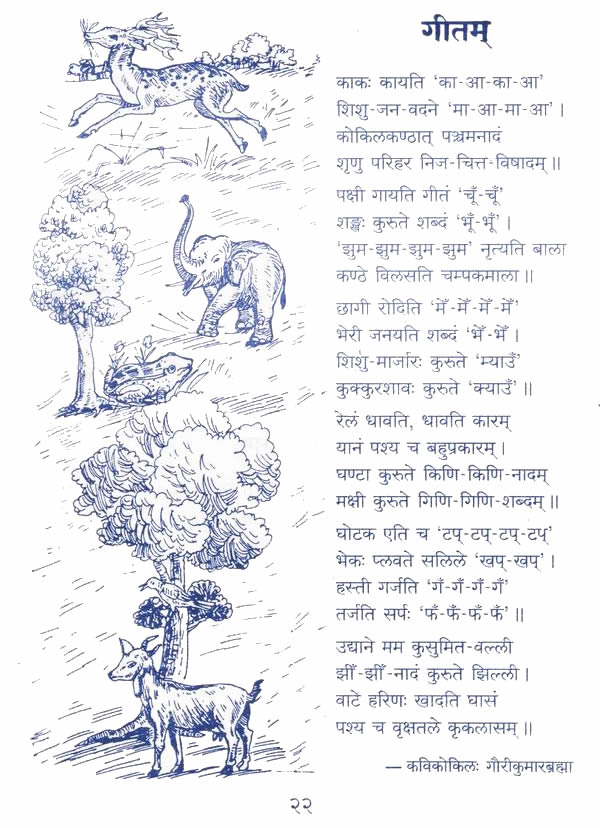 गीतम्
काकः कायति ‘का-आ-का-आ’
शिशु-जन-वदने ‘मा-आ-मा-आ’ ।
कोकिलकण्ठात् पञ्चमनादं
शृणु परिहर निज-चित्त-विषादम् ॥
पक्षी गायति गीतं ‘चूँ-चूँ’
शङ्खः कुरुते शब्दं ‘भूँ-भूँ’ ।
‘झुम-झुम-झुम-झुम’ नृत्यति बाला
कण्ठे विलसति चम्पकमाला ॥
छागी रोदिति ‘मेँ-मेँ-मेँ-मेँ’
भेरी जनयति शब्दं ‘भेँ-भेँ’ ।
शिशु-मार्जारः कुरुते ‘म्याउँ’
कुक्कुरशावः कुरुते ‘क्याउँ’ ॥
रेलं धावति, धावति कारम्
यानं पश्य च बहुप्रकारम् ।
घण्टा कुरुते किणि-किणि-नादम्
मक्षी कुरुते गिणि-गिणि-शब्दम् ॥
घोटक एति च ‘टप्-टप्-टप्-टप्’
भेकः प्लवते सलिले ‘खप्-खप्’ ।
हस्ती गर्जति ‘गँ-गँ-गँ-गँ’
तर्जति सर्पः ‘फँ-फँ-फँ-फँ’ ॥
उद्याने मम कुसुमित-वल्ली
झीँ-झीँ-नादं कुरुते झिल्ली ।
वाटे हरिणः खादति घासं
पश्य च वृक्षतले कृकलासम् ॥
— कविकोकिलः गौरीकुमारब्रह्मा
२२